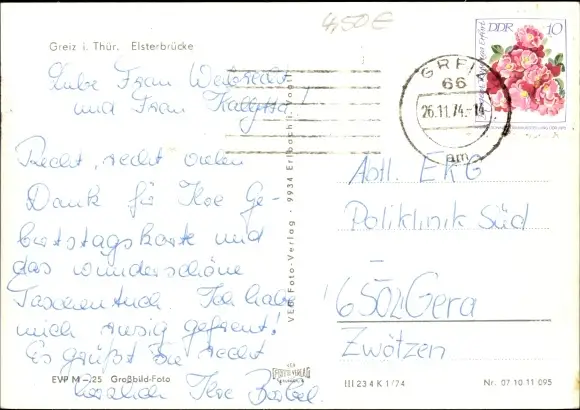 4,50€
Greiz i. Thür. Elsterbrücke
Liebe Frau
und Frau
Recht, recht vielen
Dank für Ihre Ge-
burtstagskarte und
das wunderschöne
Taschentuch. Ich habe
mich riesig gefreut!
Es grüßt Sie recht
herzlich Ihre Bärbel.
EVP M -,25 Großbild-Foto
VEB Foto-Verlag · 9934 Erlbach i. Vogtl.
VEB
FOTO-VERLAG
ERLBACH
DDR 10
GREIZ
66
26.11.74.-14
am
Abtl. EKG
Poliklinik Süd
6502 Gera
Zwötzen
III 23 4 K 1/74
Nr. 07 10 11 095